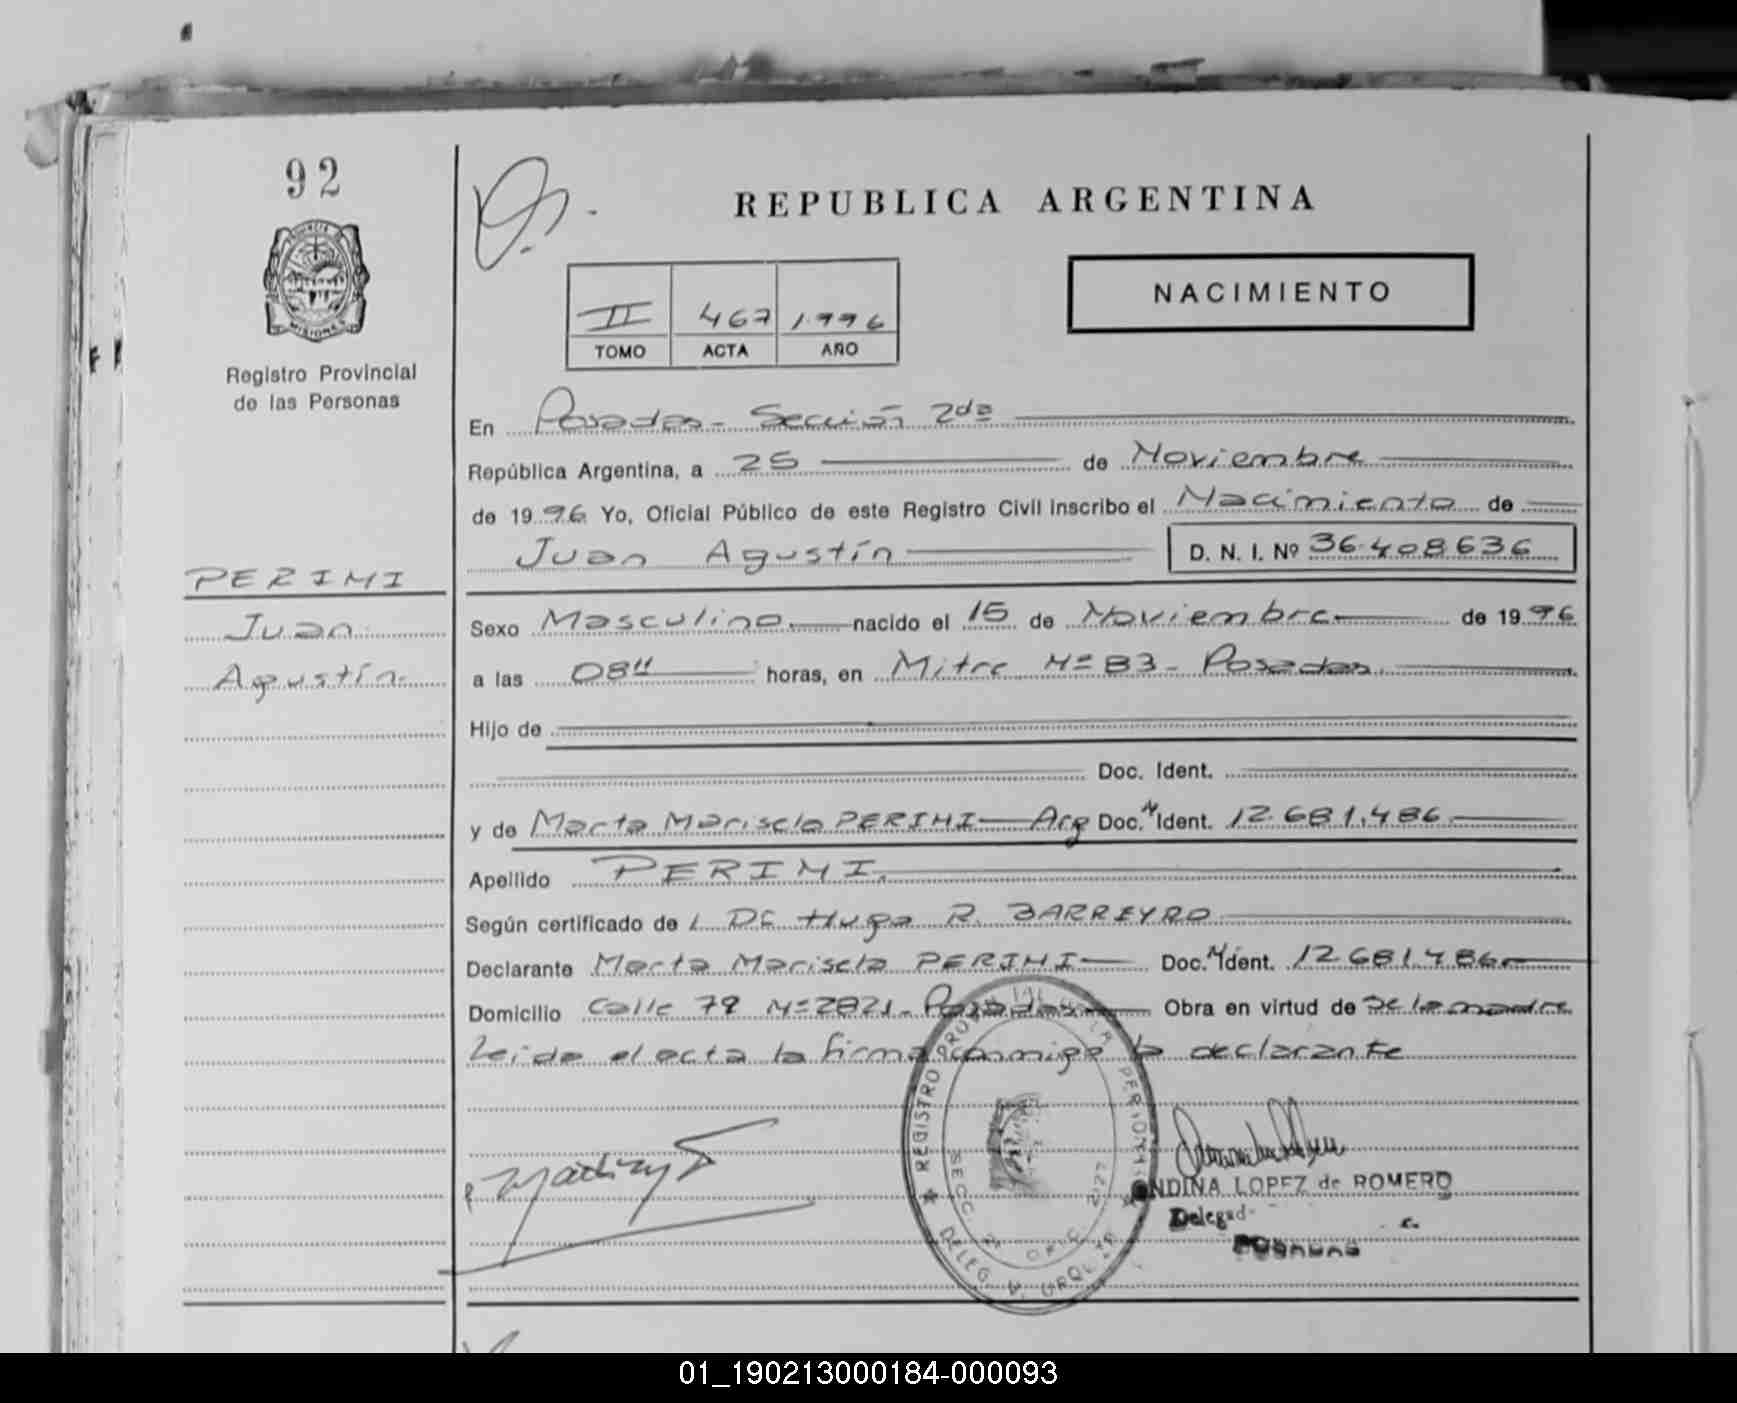 92
REPUBLICA ARGENTINA
NACIMIENTO
II 467 1.996
TOMO ACTA AÑO
PROVINCIA
MISIONES
Registro Provincial
de las Personas
En Posadas - Sección 2da
República Argentina, a 25 de Noviembre
de 1996 Yo, Oficial Público de este Registro Civil inscribo el Nacimiento de
Juan Agustín D. N. I. Nº 36.408.636
PERIMI
Juan
Agustín
Sexo Masculino nacido el 15 de Noviembre de 1996
a las 08 horas, en Mitre Nº 83 - Posadas
Hijo de
Doc. Ident.
y de Marta Marisela PERIMI Arg Doc. N Ident. 12.681.486
Apellido PERIMI
Según certificado de Dr Hugo R. BARREYRO
Declarante Marta Marisela PERIMI Doc. N Ident. 12.681.486
Domicilio Calle 79 Nº 2821 - Posadas Obra en virtud de Se la madre
Leida el acta la firma conmigo la declarante
REGISTRO PROVINCIAL DE LA
SECC. 2ª OFIC. 277
DELEG. V. URQUIZA
NDINA LOPEZ de ROMERO
Delegad
01_190213000184-000093